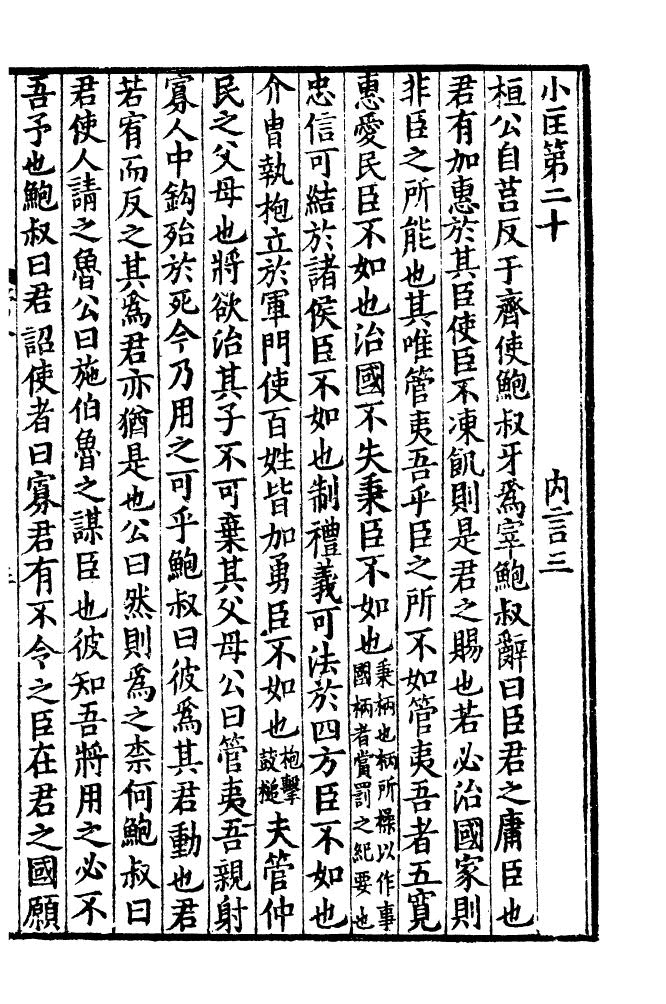 小匡第二十　內言三
桓公自莒反于齊使鮑叔牙爲宰鮑叔辭曰臣君之庸臣也
君有加惠於其臣使臣不凍飢則是君之賜也若必治國家則
非臣之所能也其唯管夷吾乎臣之所不如管夷吾者五寬
惠愛民臣不如也治國不失秉臣不如也秉柄也柄所操以作事國柄者賞罰之紀要也
忠信可結於諸侯臣不如也制禮義可法於四方臣不如也
介冑執枹立於軍門使百姓皆加勇臣不如也枹擊鼓槌夫管仲
民之父母也將欲治其子不可棄其父母公曰管夷吾親射
寡人中鈎殆於死今乃用之可乎鮑叔曰彼爲其君動也君
若宥而反之其爲君亦猶是也公曰然則爲之柰何鮑叔曰
君使人請之魯公曰施伯魯之謀臣也彼知吾將用之必不
吾予也鮑叔曰君詔使者曰寡君有不令之臣在君之國願